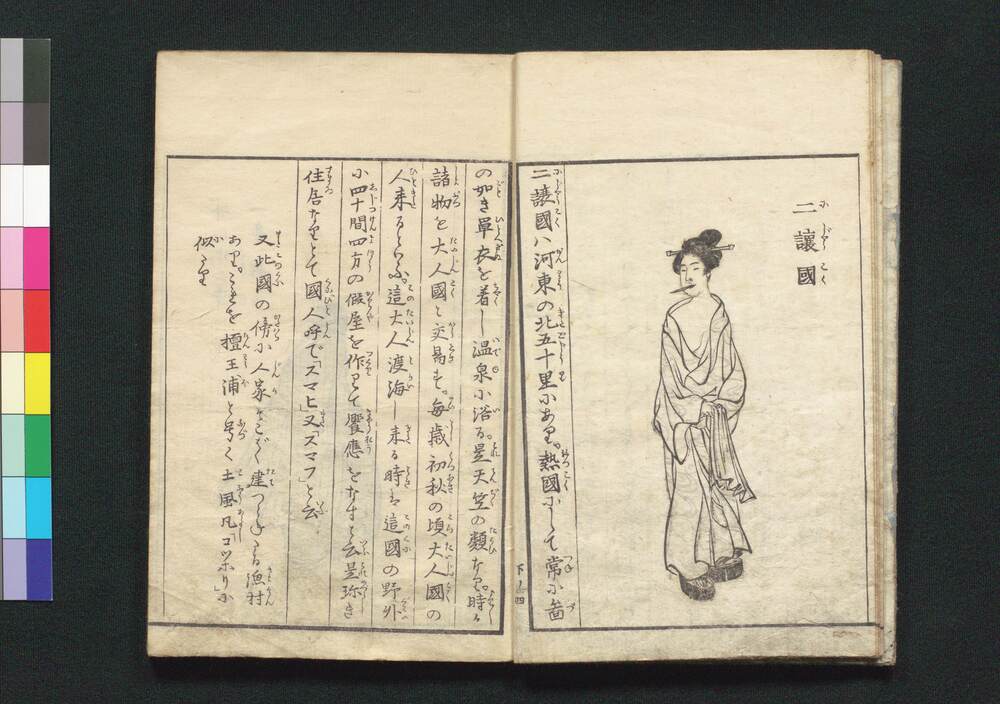 二讓國
二讓國ハ河東の北五十里にあり。熱國にして常に畵
の如き單衣を着し温泉に浴る。是天竺の類なり。時々
諸物を大人國と交易す。毎歳初秋の頃大人國の
人来るといふ。這大人渡海し来る時は這國の野外
に四十間四方の假屋を作りて饗應をなすと云是珎き
住居なりとて國人呼で「スマヒ」又「スマフ」と云
又此國の傍に人家まばらに建つらねたる漁村
あり。これを擅王浦と号く土風凡「コツホリ」に
似たり
下ノ四